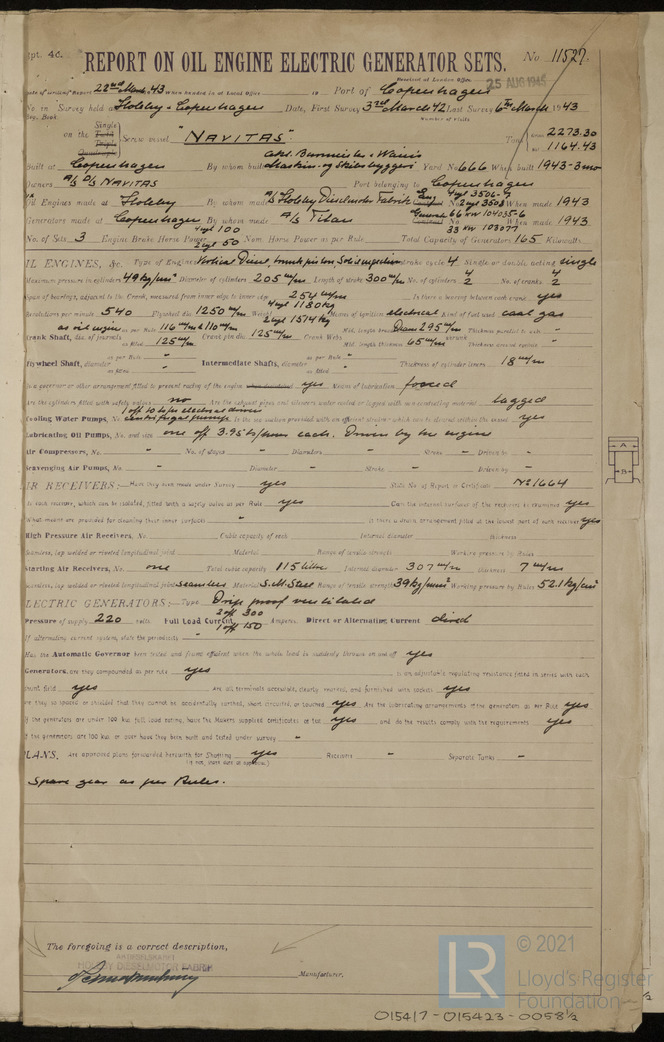 Rpt. 4c.
REPORT ON OIL ENGINE ELECTRIC GENERATOR SETS.
No 11527.
Received at London Office 25 AUG 1945
Date of writing Report 22nd March 43 When handed in at Local Office 19 Port of Copenhagen
No. in Survey held at Holeby & Copenhagen Date, First Survey 3rd March 42 Last Survey 6th March 1943
Reg. Book Number of Visits
on the Single Screw vessel "NAVITAS" Tons 2273.30
1164.43
Built at Copenhagen By whom built Akt. Burmeister & Wain's Maskin- og Skibsbyggeri Yard No 666 When built 1943-3mo
Owners A/S D/S NAVITAS Port belonging to Copenhagen
Oil Engines made at Holeby By whom made A/S Holeby Dieselmotor Fabrik 4cyl 3506-7 2cyl 3508 When made 1943
Generators made at Copenhagen By whom made A/S Titan 66 KW 104035-6 33 KW 103077 When made 1943
No. of Sets 3 Engine Brake Horse Power 4cyl 100 2cyl 50 Nom. Horse Power as per Rule Total Capacity of Generators 165 Kilowatts
OIL ENGINES, &c. Type of Engines Vertical Diesel, trunk piston, Solid injection stroke cycle 4 Single or double acting single
Maximum pressure in cylinders 49 kg/cm² Diameter of cylinders 205 m/m Length of stroke 300 m/m No. of cylinders 4 2 No. of cranks 4 2
Span of bearings, adjacent to the Crank, measured from inner edge to inner edge 254 m/m Is there a bearing between each crank yes
Revolutions per minute 540 Flywheel dia. 1250 m/m Weight 4cyl 1180 kg 2cyl 1514 kg Means of ignition electrical Kind of fuel used coal gas
as oil engine
Crank Shaft, dia. of journals as per Rule 116 m/m & 110 m/m as fitted 125 m/m Crank pin dia. 125 m/m Crank Webs Mid. length breadth Diam 295 m/m Mid. length thickness 65 m/m shrunk Thickness parallel to axis - Thickness around eyehole -
Flywheel Shaft, diameter as per Rule " as fitted " Intermediate Shafts, diameter as per Rule " as fitted " Thickness of cylinder liners 18 m/m
Is a governor or other arrangement fitted to prevent racing of the engine yes Means of lubrication forced
Are the cylinders fitted with safety valves no Are the exhaust pipes and silencers water cooled or lagged with non-conducting material lagged
Cooling Water Pumps, No. 1 off 10 t/h electrical driven centrifugal pumps Is the sea suction provided with an efficient strainer which can be cleared within the vessel yes
Lubricating Oil Pumps, No. and size one off 3.95 t/hour each. Driven by the engine
Air Compressors, No. " No. of stages " Diameters " Stroke " Driven by -
Scavenging Air Pumps, No. " Diameter " Stroke " Driven by -
AIR RECEIVERS:- Have they been made under Survey yes State No. of Report or Certificate No 1664
Is each receiver, which can be isolated, fitted with a safety valve as per Rule yes Can the internal surfaces of the receivers be examined yes
What means are provided for cleaning their inner surfaces " Is there a drain arrangement fitted at the lowest part of each receiver yes
High Pressure Air Receivers, No. Cubic capacity of each Internal diameter thickness
Seamless, lap welded or riveted longitudinal joint Material Range of tensile strength Working pressure by Rules
Starting Air Receivers, No. one Total cubic capacity 115 litres Internal diameter 307 m/m thickness 7 m/m
Seamless, lap welded or riveted longitudinal joint seamless Material S.M. Steel Range of tensile strength 39 kg/mm² Working pressure by Rules 52.1 kg/cm²
ELECTRIC GENERATORS:- Type Drip proof ventilated
Pressure of supply 220 volts. Full Load Current 2 off 300 1 off 150 Amperes. Direct or Alternating Current direct
If alternating current system, state the periodicity "
Has the Automatic Governor been tested and found efficient when the whole load is suddenly thrown on and off yes
Generators, are they compounded as per rule yes is an adjustable regulating resistance fitted in series with each
shunt field yes Are all terminals accessible, clearly marked, and furnished with sockets yes
are they so spaced or shielded that they cannot be accidentally earthed, short circuited, or touched yes Are the lubricating arrangements of the generators as per Rule yes
If the generators are under 100 kw. full load rating, have the Makers supplied certificates of test yes and do the results comply with the requirements yes
If the generators are 100 kw. or over have they been built and tested under survey "
PLANS. Are approved plans forwarded herewith for Shafting yes Receivers " Separate Tanks "
(If not, state date of approval)
Spare gear as per Rules.
A
B
The foregoing is a correct description,
AKTIESELSKABET
HOLEBY DIESELMOTOR FABRIK
Manufacturer.
LR
© 2021
Lloyd's Register
Foundation
015417-015423-0058½